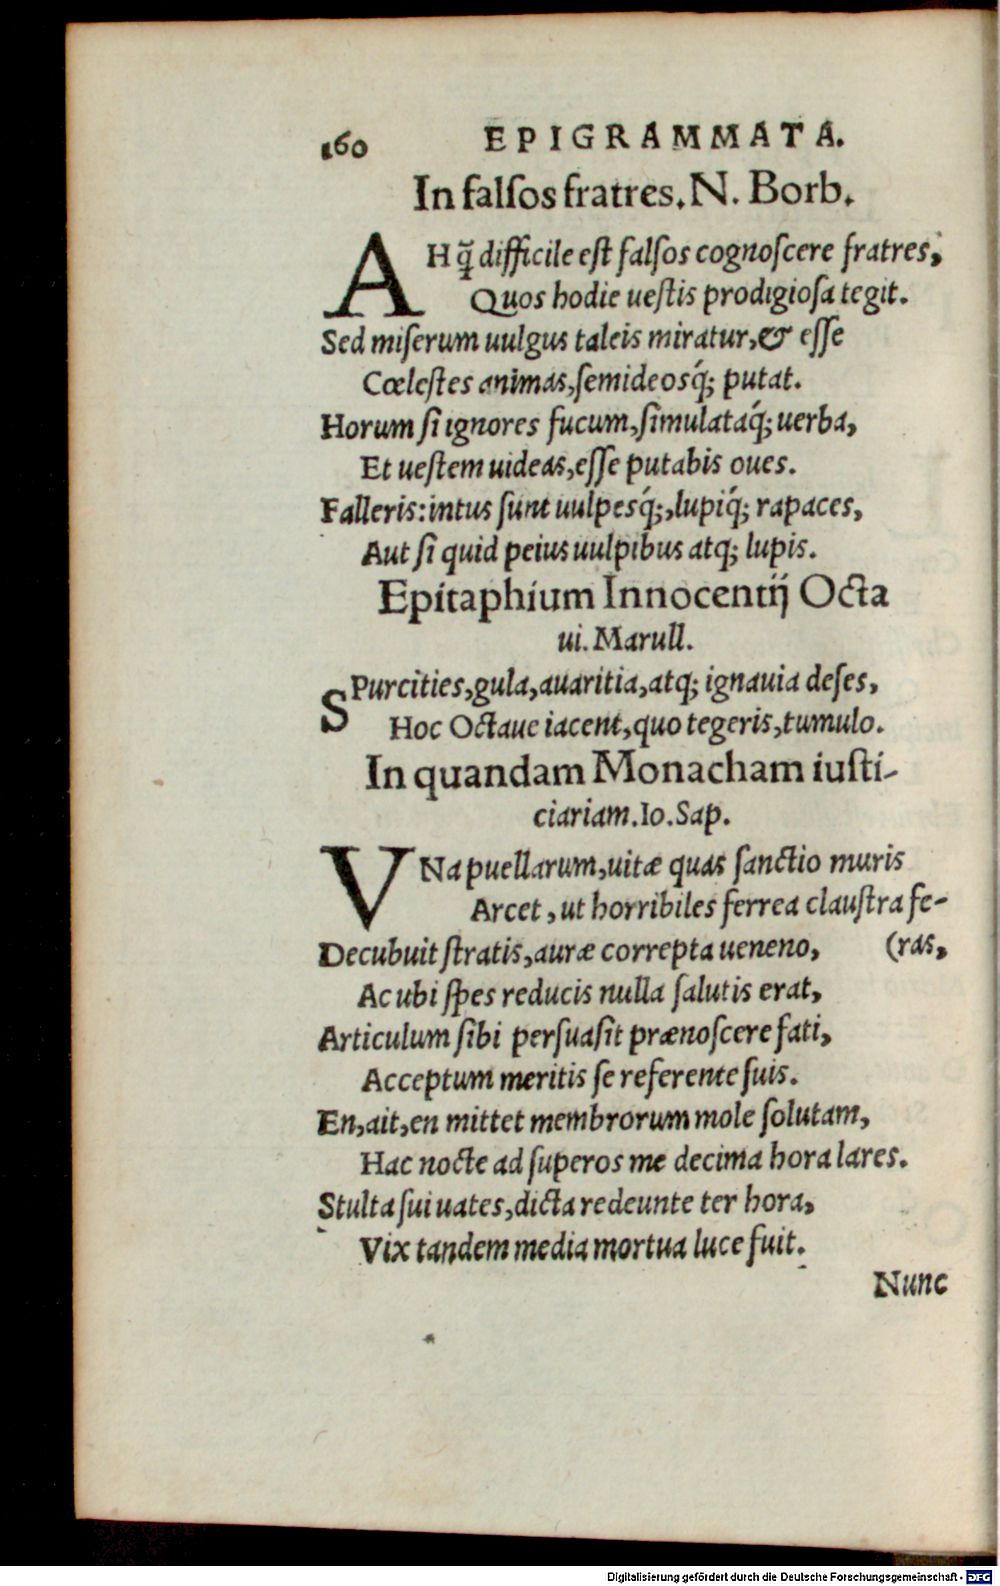 160 EPIGRAMMATA.
In falſos fratres. N. Borb.
AH q̃ difficile eſt falſos cognoſcere fratres,
Quos hodie ueſtis prodigioſa tegit.
Sed miſerum uulgus taleis miratur, & eſſe
Cœleſtes animas, ſemideosq́; putat.
Horum ſi ignores fucum, ſimulataq́; uerba,
Et ueſtem uideas, eſſe putabis oues.
Falleris: intus ſunt uulpesq́;, lupiq́; rapaces,
Aut ſi quid peius uulpibus atq; lupis.
Epitaphium Innocentij Octa
ui. Marull.
SPurcities, gula, auaritia, atq; ignauia deſes,
Hoc Octaue iacent, quo tegeris, tumulo.
In quandam Monacham iuſti-
ciariam. Io. Sap.
VNa puellarum, uitæ quas ſanctio muris
Arcet, ut horribiles ferrea clauſtra fe-
Decubuit ſtratis, auræ correpta ueneno, (ras,
Ac ubi ſpes reducis nulla ſalutis erat,
Articulum ſibi perſuaſit prænoſcere fati,
Acceptum meritis ſe referente ſuis.
En, ait, en mittet membrorum mole ſolutam,
Hac nocte ad ſuperos me decima hora lares.
Stulta ſui uates, dicta redeunte ter hora,
Vix tandem media mortua luce fuit.
Nunc
Digitalisierung gefördert durch die Deutsche Forschungsgemeinschaft - DFG